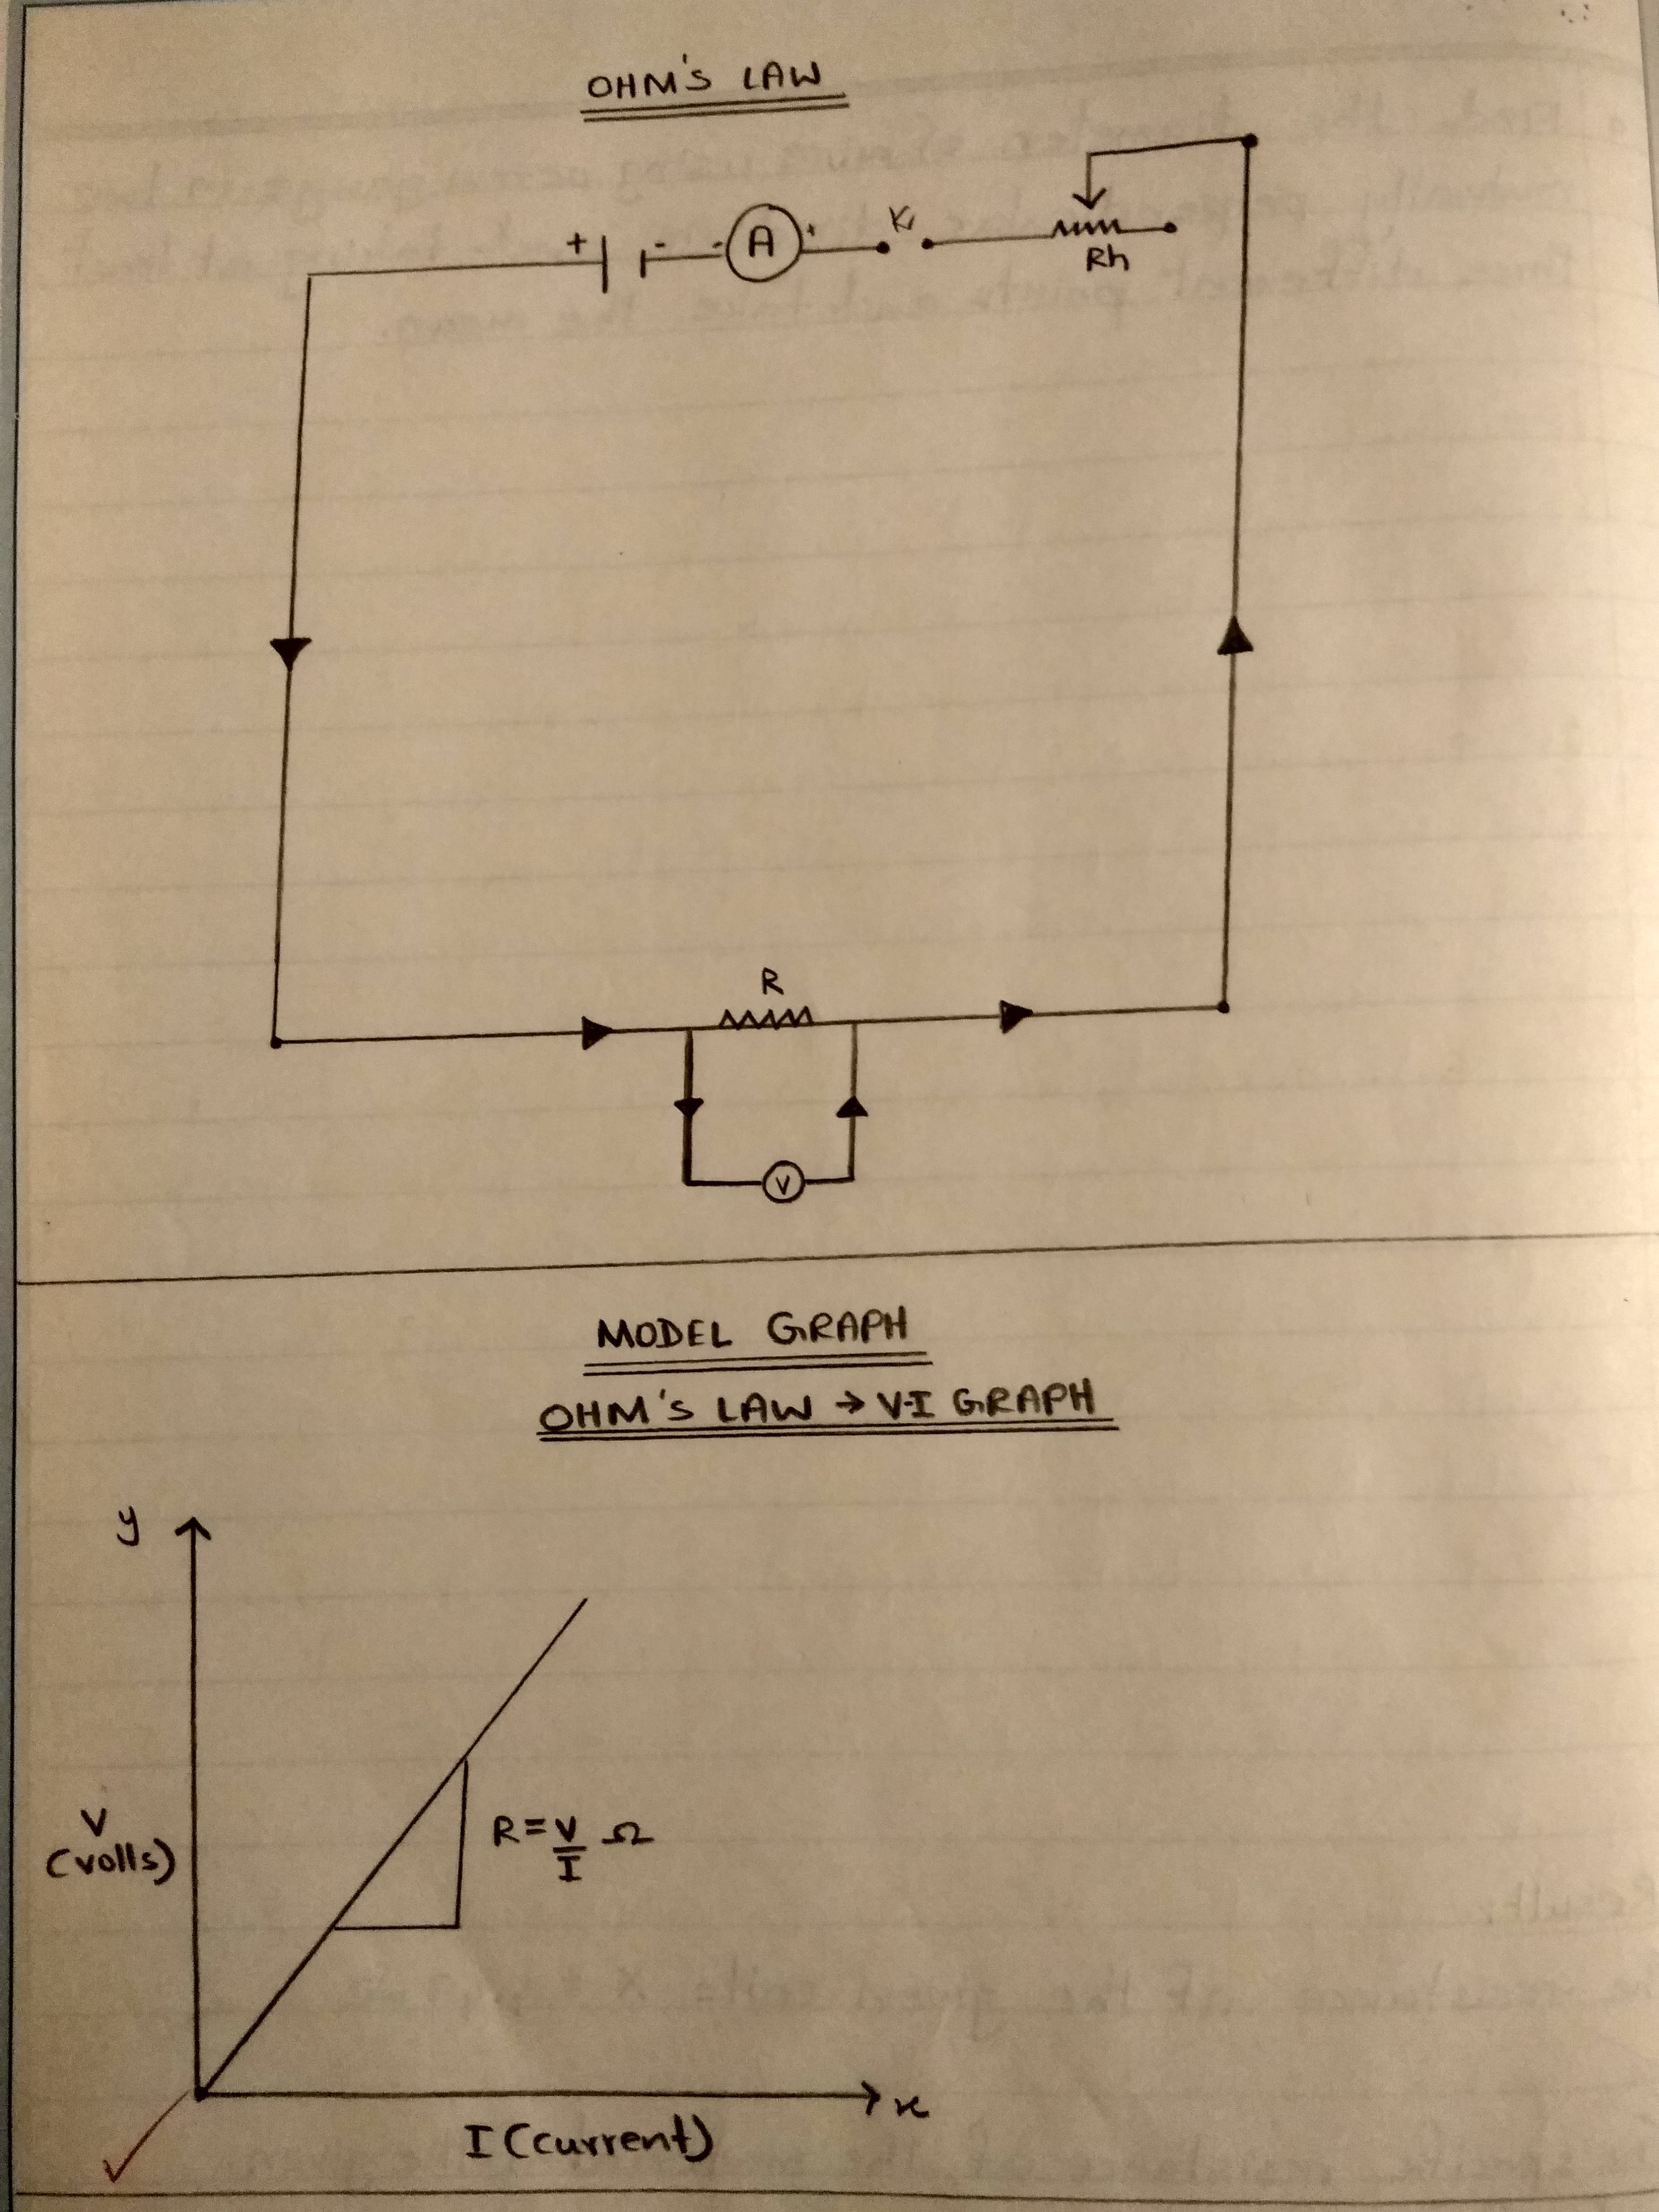 OHM'S LAW
+ - - A + K₁ Rh
R
V
MODEL GRAPH
OHM'S LAW → V-I GRAPH
y
V
(volls)
R = V/I Ω
x
I (current)